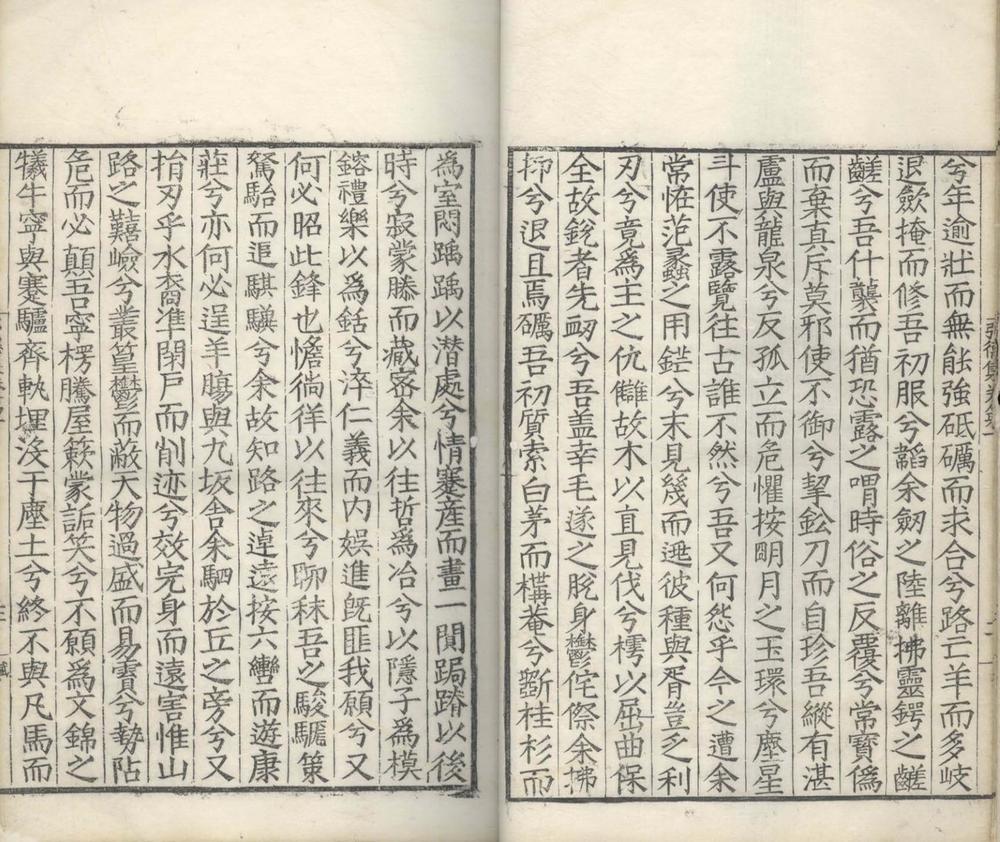 兮年逾壯而無能強砥礪而求合兮路亡羊而多岐
退歛掩而修吾初服兮韜余劒之陸離拂靈鍔之齹
齹兮吾什襲而猶恐露之喟時俗之反覆兮常寳僞
而棄真斥莫邪使不御兮挈鈆刀而自珍吾縱有湛
盧與龍泉兮反孤立而危懼按明月之玉環兮塵星
斗使不露覽往古誰不然兮吾又何怨乎今之遭余
常恠范蠡之用鋩兮末見幾而遯彼種與胥豈乏利
刃兮竟爲主之仇讎故木以直見伐兮樗以屈曲保
全故銳者先衂兮吾盖幸毛遂之脫身鬱侘傺余拂
抑兮退且焉礪吾初質索白茅而構菴兮斵桂杉而
爲室悶踽踽以潜處兮情蹇産而畫一闃跼蹐以後
時兮寂蒙滕而藏宻余以徃哲爲冶兮以隱子爲模
鎔禮樂以爲銛兮淬仁義而内娛進旣匪我願兮又
何必昭此鋒也憺徜徉以往來兮聊秣吾之駿驪策
駑駘而追騏驥兮余故知路之逴遠按六轡而遊康
莊兮亦何必逞羊膓與九坂舎余駟於丘之旁兮又
掯刃乎水裔准閉戸而削迹兮效完身而遠害惟山
路之囏嶮兮叢篁鬱而蔽天物過盛而易賣兮勢阽
危而必顛吾寧楞騰屋簌蒙詬笑兮不願爲文錦之
犠牛寧與蹇驢齊軌埋沒于塵土兮終不與凡馬而